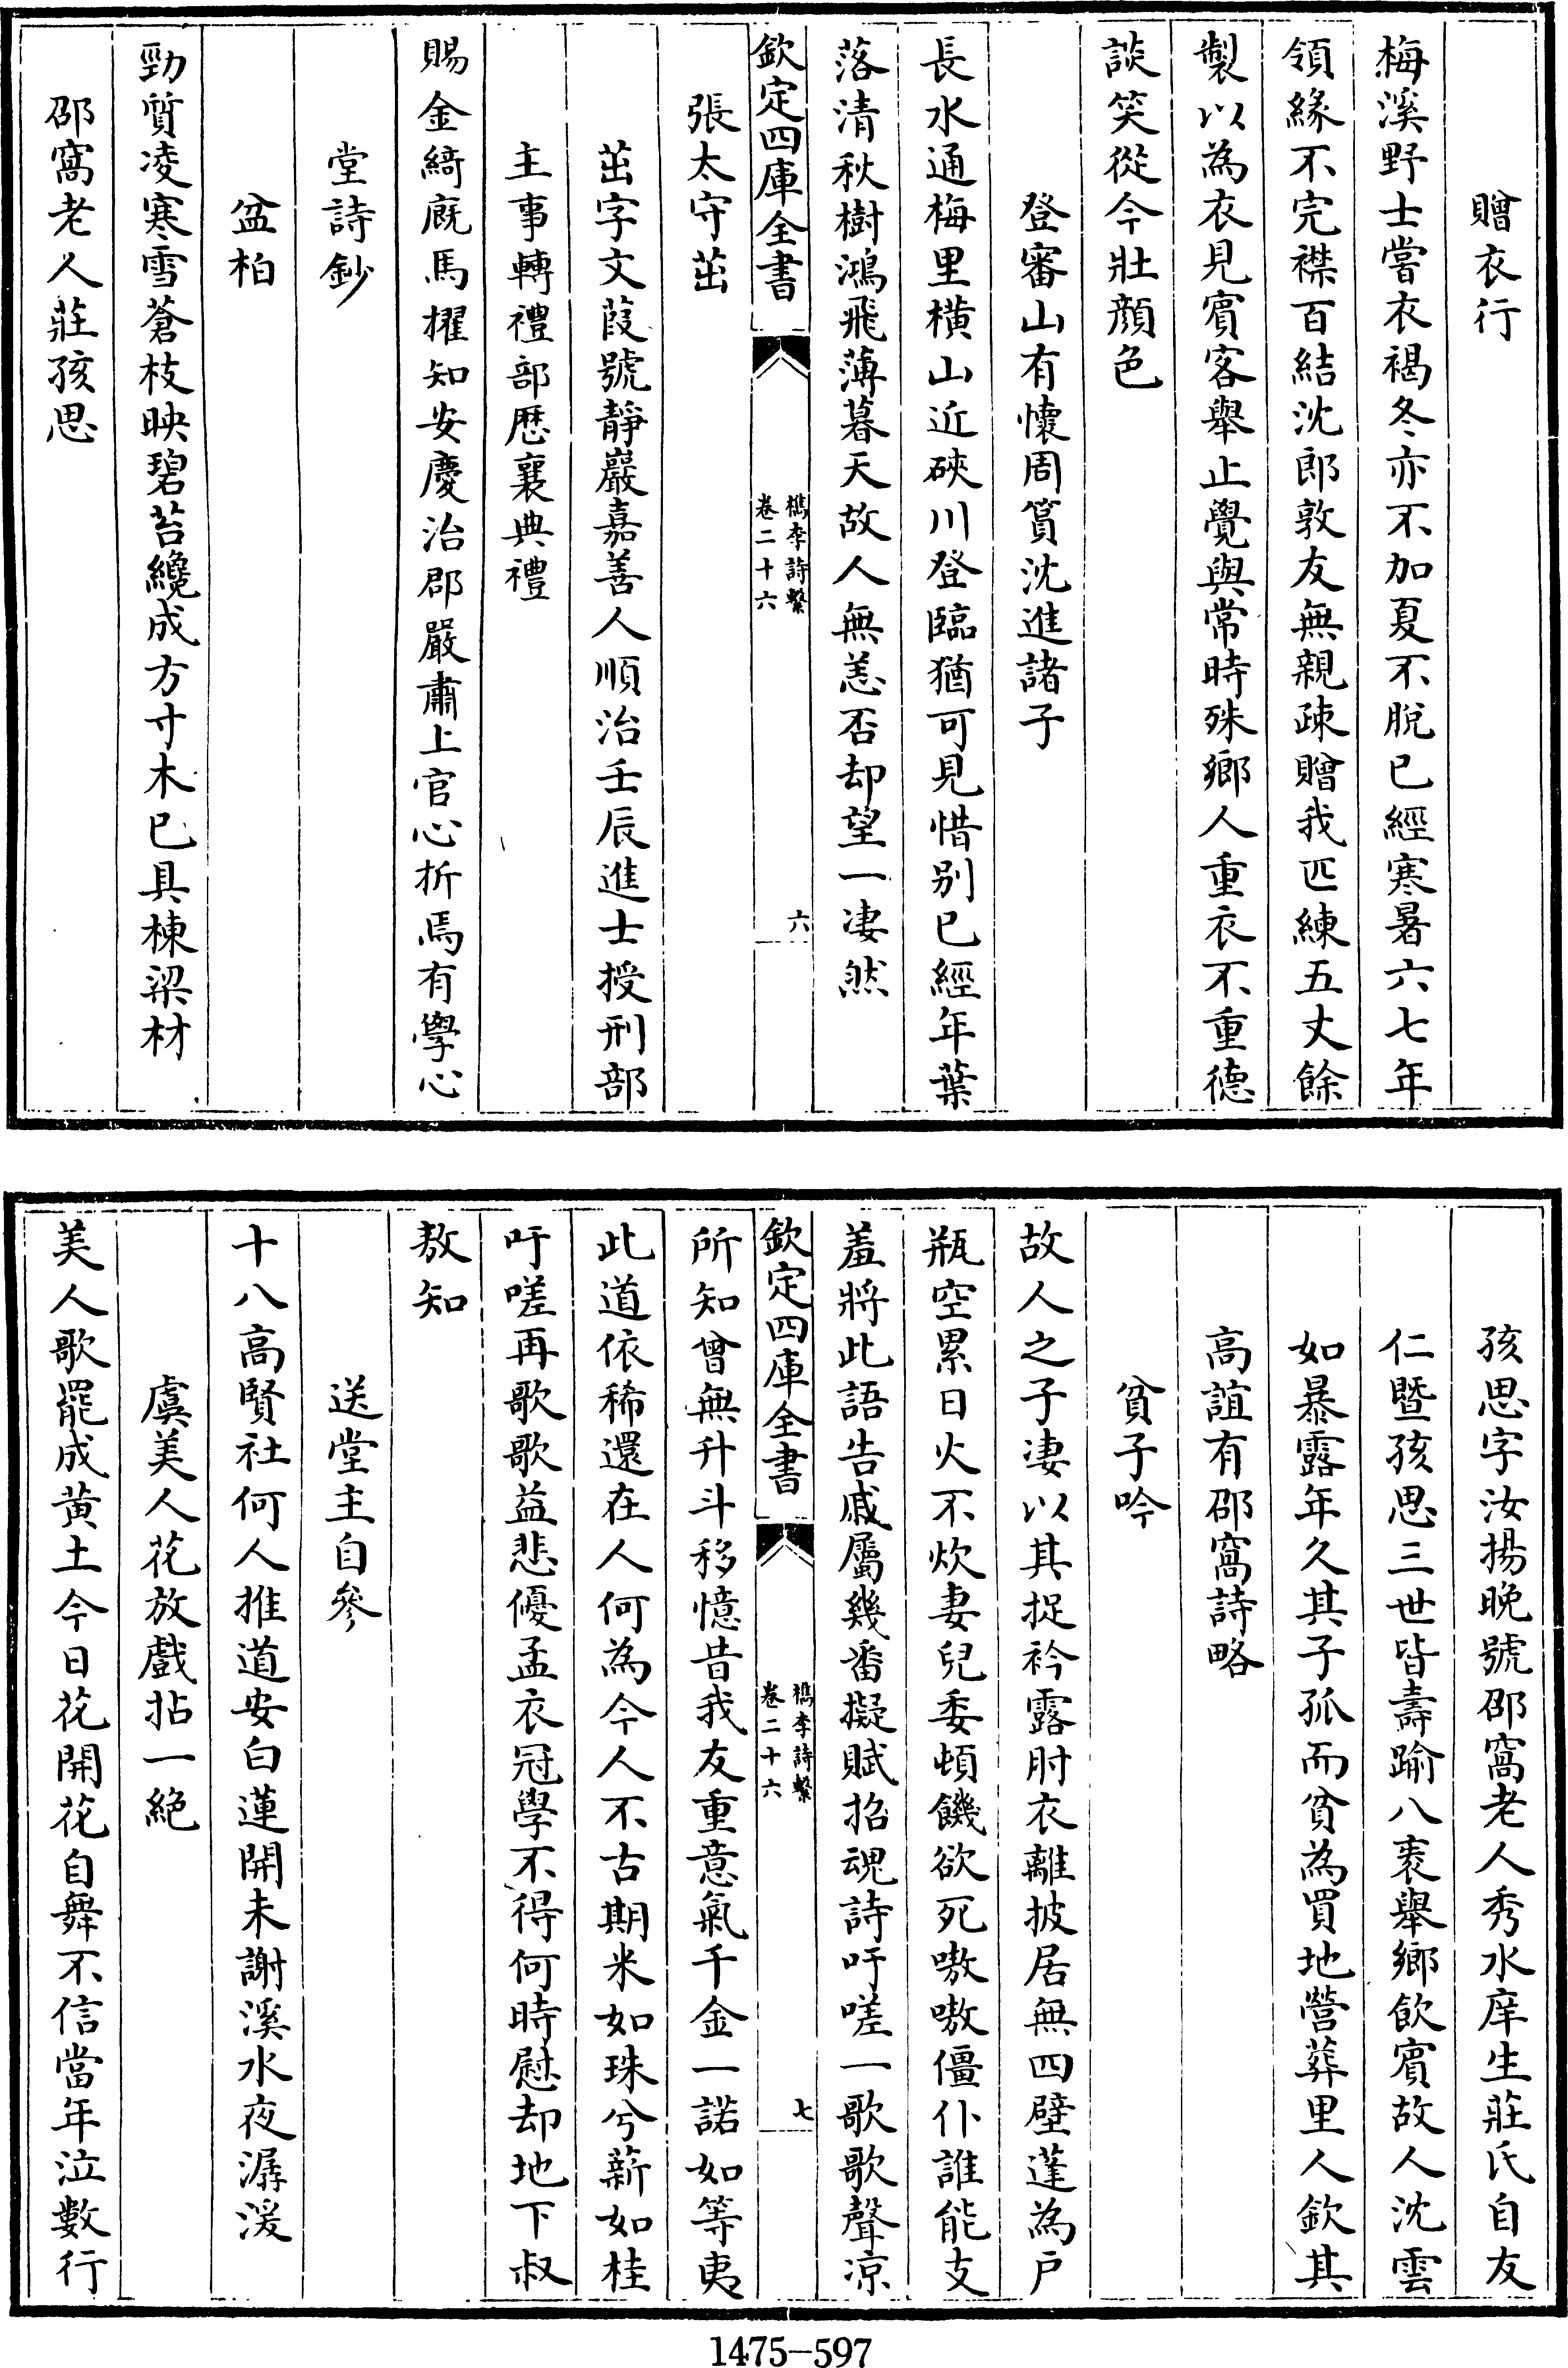 贈衣行
梅溪野士嘗衣褐冬亦不加夏不脫已經寒暑六七年
領緣不完襟百結沈郎敦友無親疎贈我匹練五丈餘
製以為衣見賓客舉止覺與常時殊鄉人重衣不重德
談笑從今壯顔色
登審山有懷周篔沈進諸子
長水通梅里橫山近硤川登臨猶可見惜别已經年葉
落清秋樹鴻飛薄暮天故人無恙否却望一凄然
欽定四庫全書
檇李詩繫
卷二十六
六
張太守茁
茁字文葭號靜巖嘉善人順治壬辰進士授刑部
主事轉禮部歷襄典禮
賜金綺廐馬擢知安慶治郡嚴肅上官心折焉有學心
堂詩鈔
盆柏
勁質凌寒雪蒼枝映碧苔纔成方寸木已具棟梁材
邵窩老人莊孩思
孩思字汝揚晚號邵窩老人秀水庠生莊氏自友
仁暨孩思三世皆壽踰八袠舉鄉飲賓故人沈雲
如暴露年久其子孤而貧為買地營葬里人欽其
高誼有邵窩詩略
貧子吟
故人之子凄以其捉衿露肘衣離披居無四壁蓬為戶
瓶空累日火不炊妻兒委頓饑欲死嗷嗷僵仆誰能支
羞將此語告戚屬幾番擬賦招魂詩吁嗟一歌歌聲凉
欽定四庫全書
檇李詩繫
卷二十六
七
所知曾無升斗移憶昔我友重意氣千金一諾如等夷
此道依稀還在人何為今人不古期米如珠兮薪如桂
吁嗟再歌歌益悲優孟衣冠學不得何時慰却地下叔
敖知
送堂主自參
十八高賢社何人推道安白蓮開未謝溪水夜潺湲
虞美人花放戲拈一絕
美人歌罷成黃土今日花開花自舞不信當年泣數行
1475-597